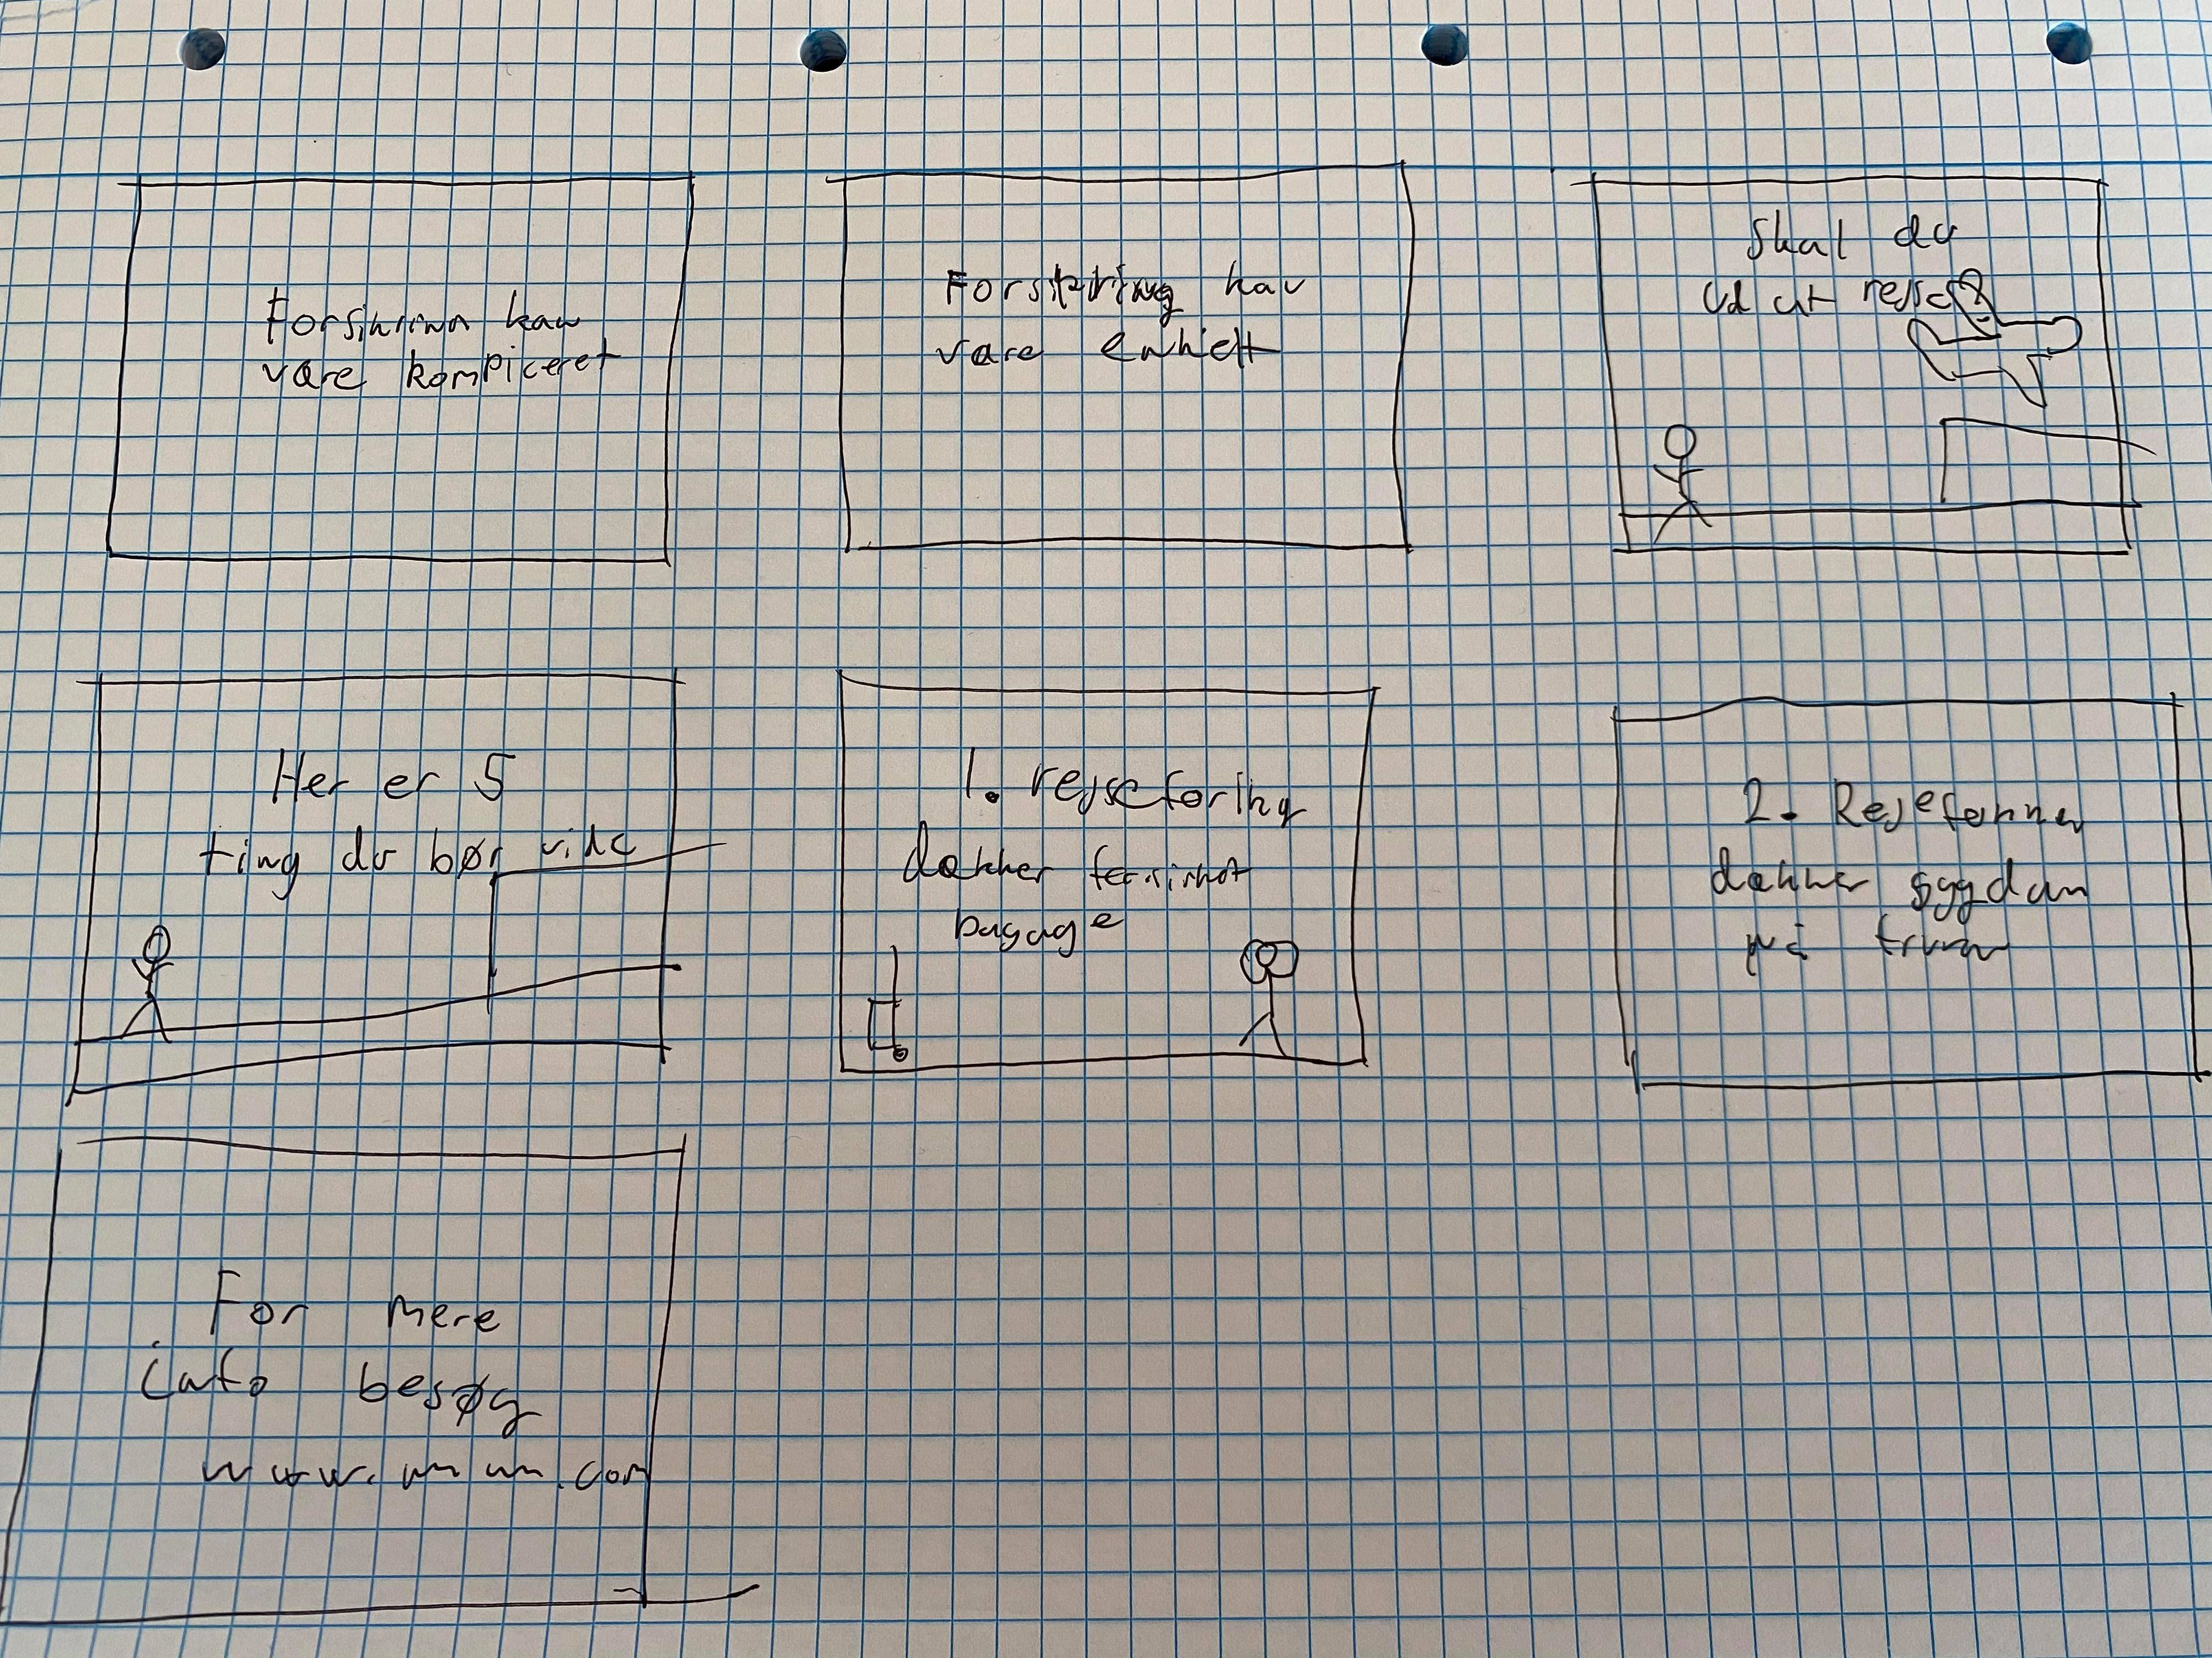 Forsikring kan
være kompliceret
Forsikring kan
være enkelt
Skal du
ud at rejse?
Her er 5
ting du bør vide
1. rejseforing
dækker forsinket
bagage
2. Rejse
dækker sygdom
på
For mere
info besøg
www. .com